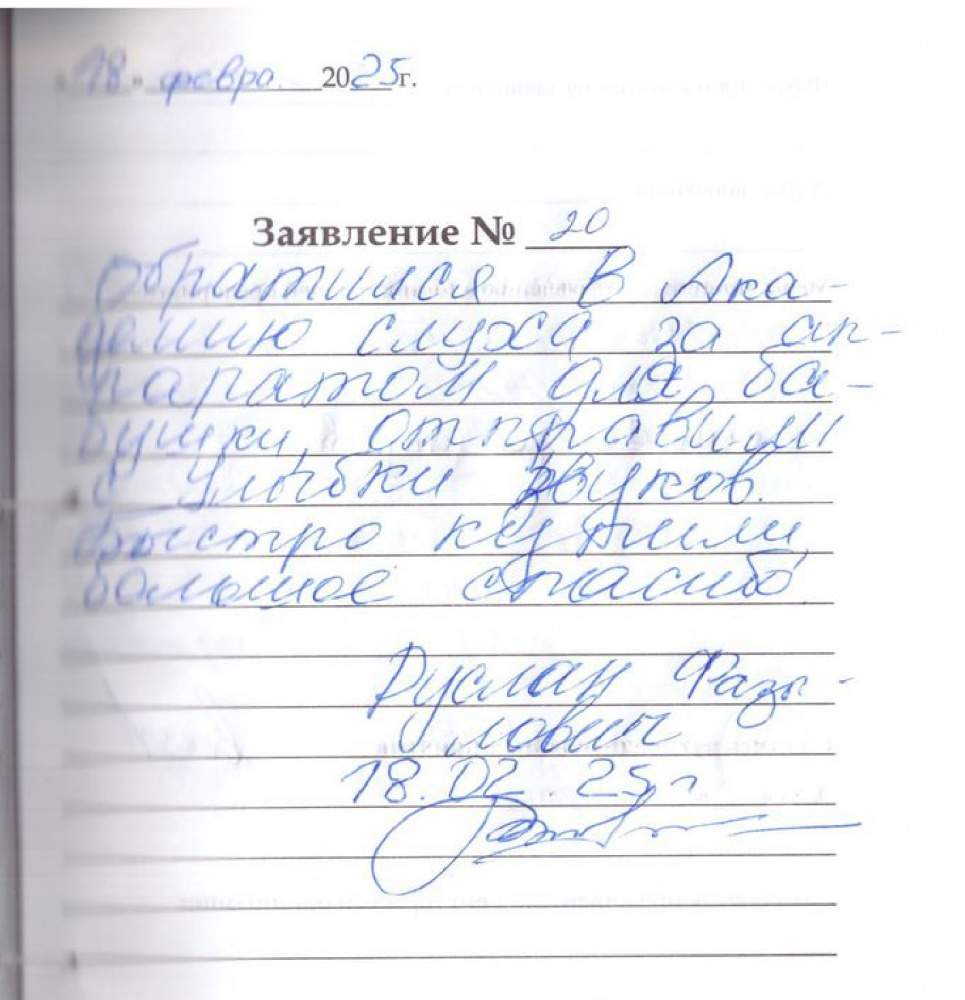 «18» февра. 2025г.
Заявление № 20
Обратился в Ака-
демию слуха за ап-
паратом для ба-
бушки, отправили
с Улыбки звуков.
быстро купили,
большое спасибо
Руслан Фазы-
лович
18.02 25г